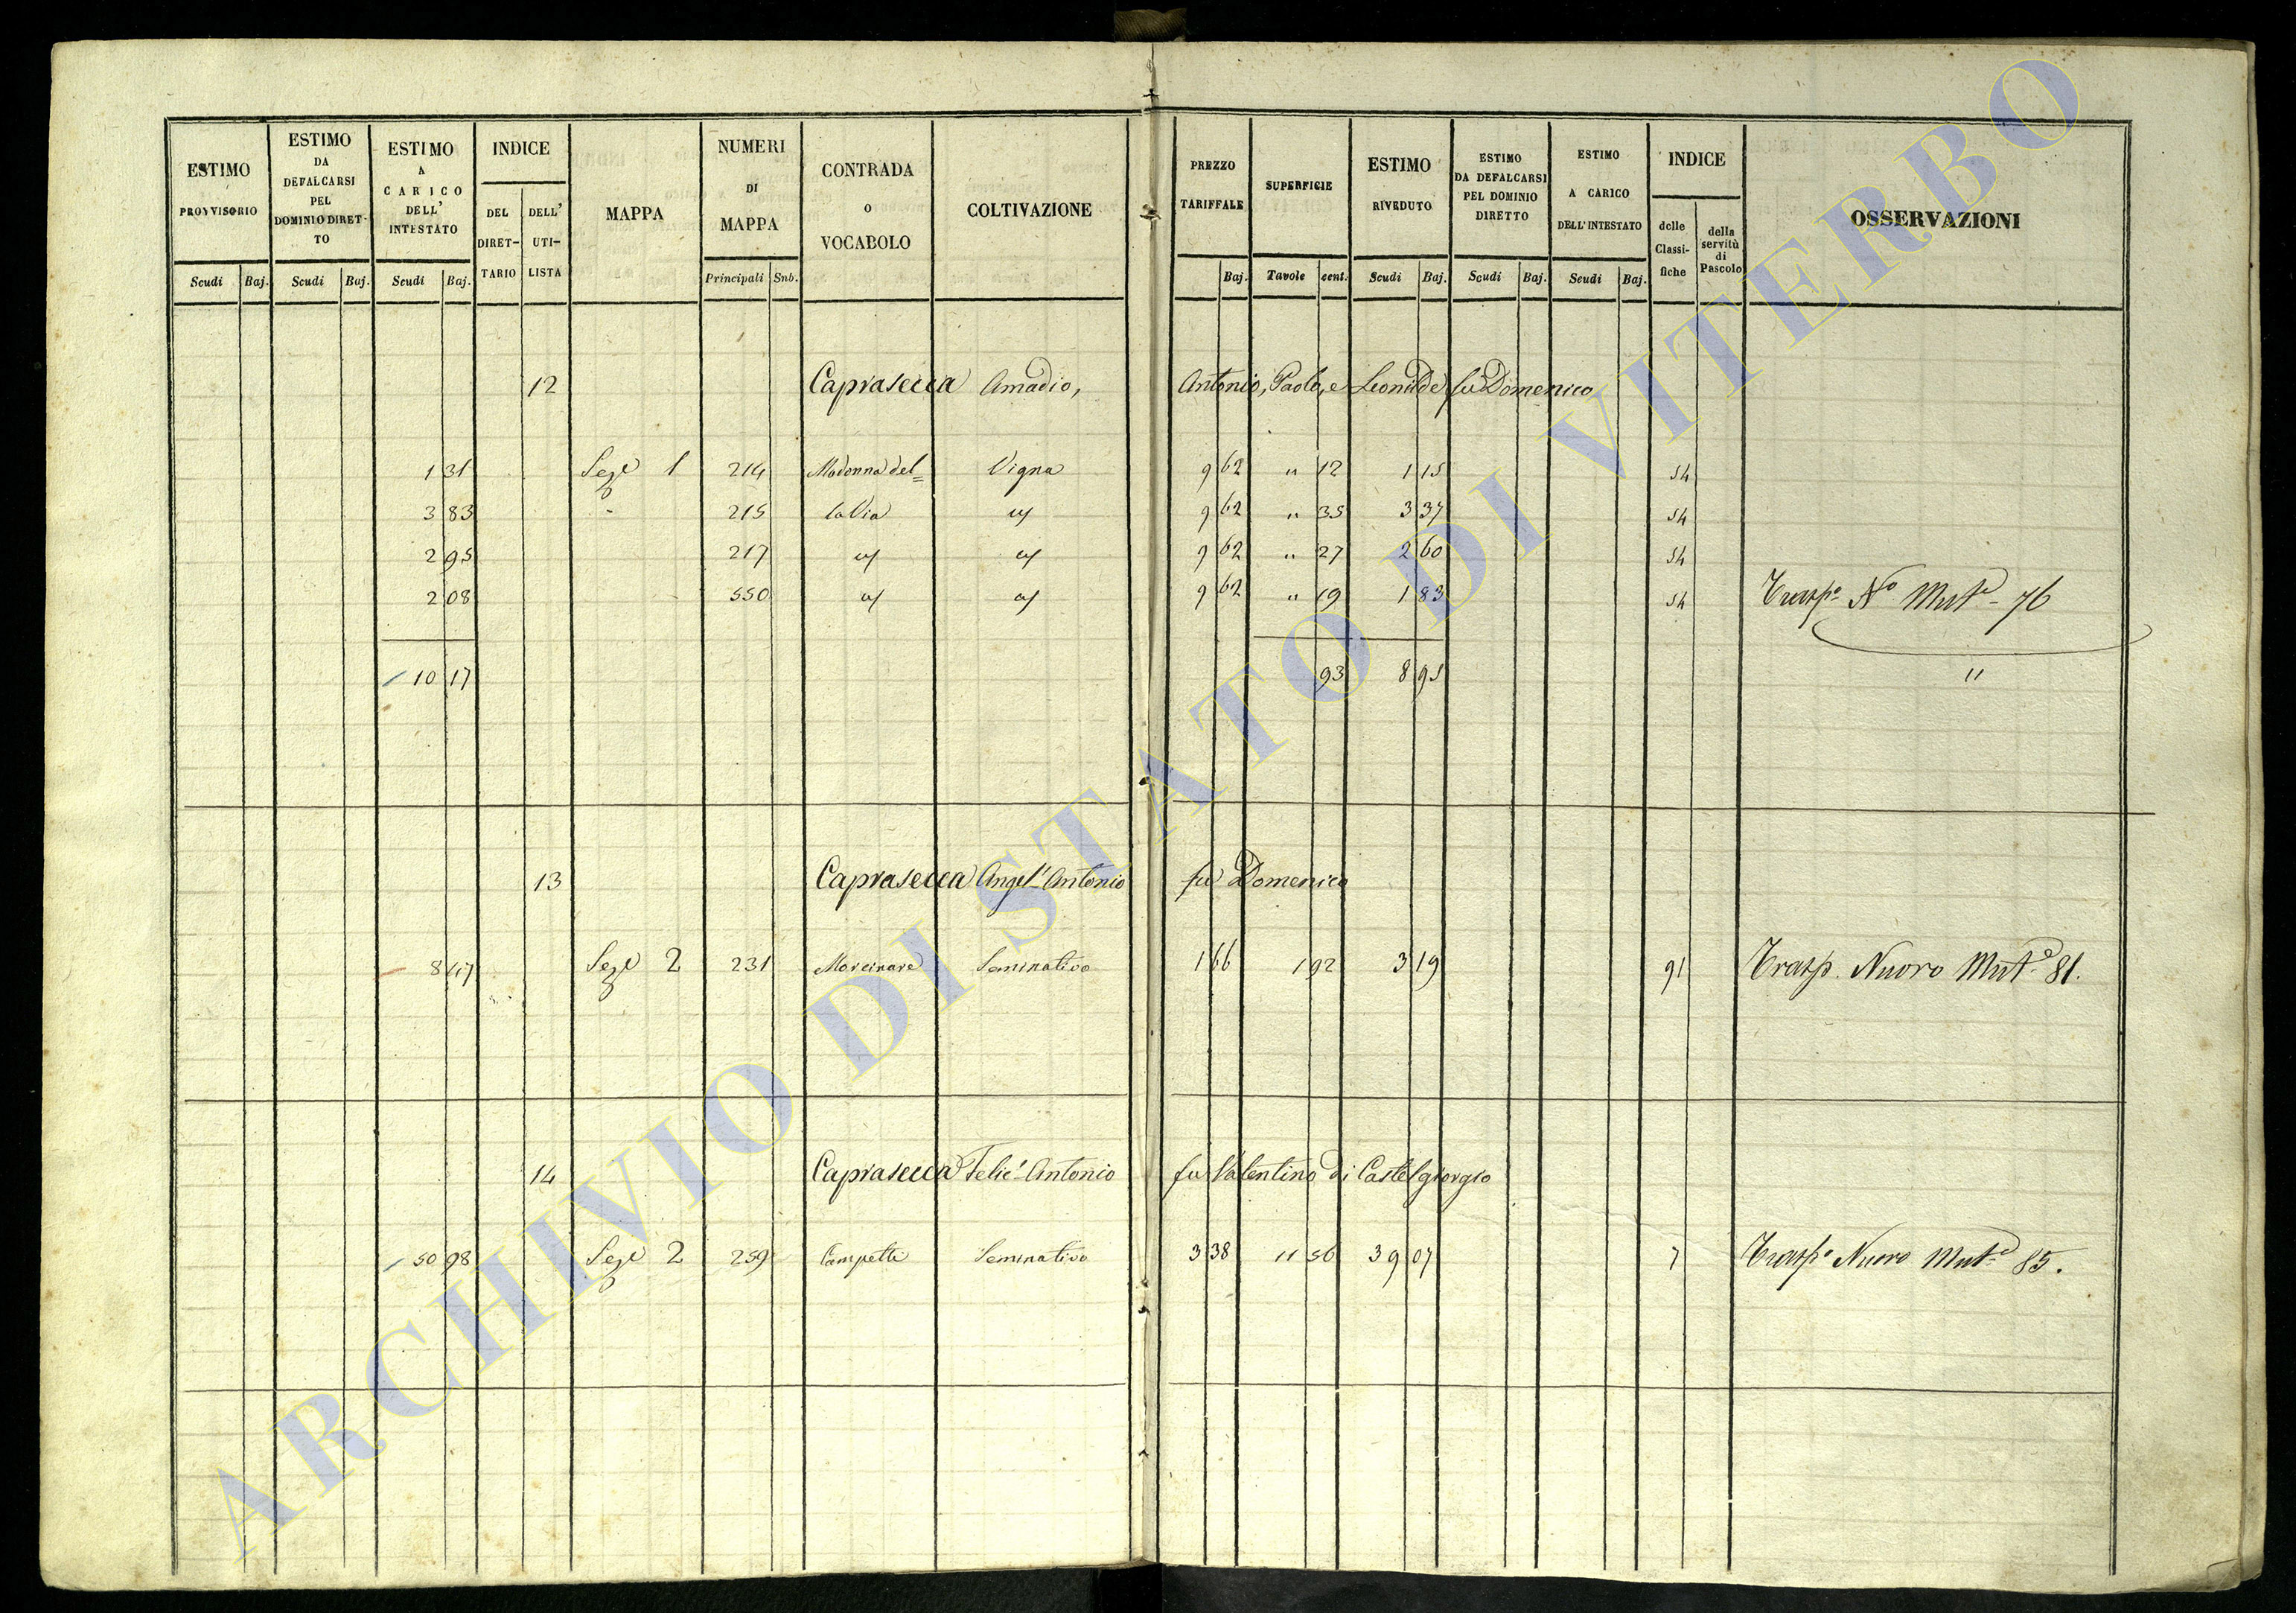 ESTIMO PROVVISORIO Scudi Baj.
ESTIMO DA DEFALCARSI PEL DOMINIO DIRET-TO Scudi Baj.
ESTIMO A CARICO DELL' INTESTATO Scudi Baj.
INDICE DEL DIRET-TARIO DELL' UTI-LISTA
MAPPA
NUMERI DI MAPPA Principali Snb.
CONTRADA O VOCABOLO
COLTIVAZIONE
PREZZO TARIFFALE Baj.
SUPERFICIE Tavole cent.
ESTIMO RIVEDUTO Scudi Baj.
ESTIMO DA DEFALCARSI PEL DOMINIO DIRETTO Scudi Baj.
ESTIMO A CARICO DELL'INTESTATO Scudi Baj.
INDICE delle Classi-fiche della servitù di Pascolo
OSSERVAZIONI
12 Caprasecca Amadio, Antonio, Paolo, e Leonilde fu Domenico
1 31 Seze 1 214 Madonna del= Vigna 9 62 " 12 1 15 54
3 83 - 215 la Via " 9 62 " 35 3 37 54
2 95 217 " " 9 62 " 27 2 60 54
2 08 550 " " 9 62 " 19 1 83 54 Trasp.o No Mut.e - 76
10 17 93 8 95 "
13 Caprasecca Angel'Antonio fu Domenico
8 47 Seze 2 231 Marcinare Seminativo 1 66 1 92 3 19 91 Trasp. Nuovo Mut.e 81.
14 Caprasecca Felic'Antonio fu Valentino di Castelgiorgio
50 98 Seze 2 259 Campetti Seminativo 3 38 11 56 39 07 7 Trasp.o Nuovo Mut.e 85.
ARCHIVIO DI STATO DI VITERBO